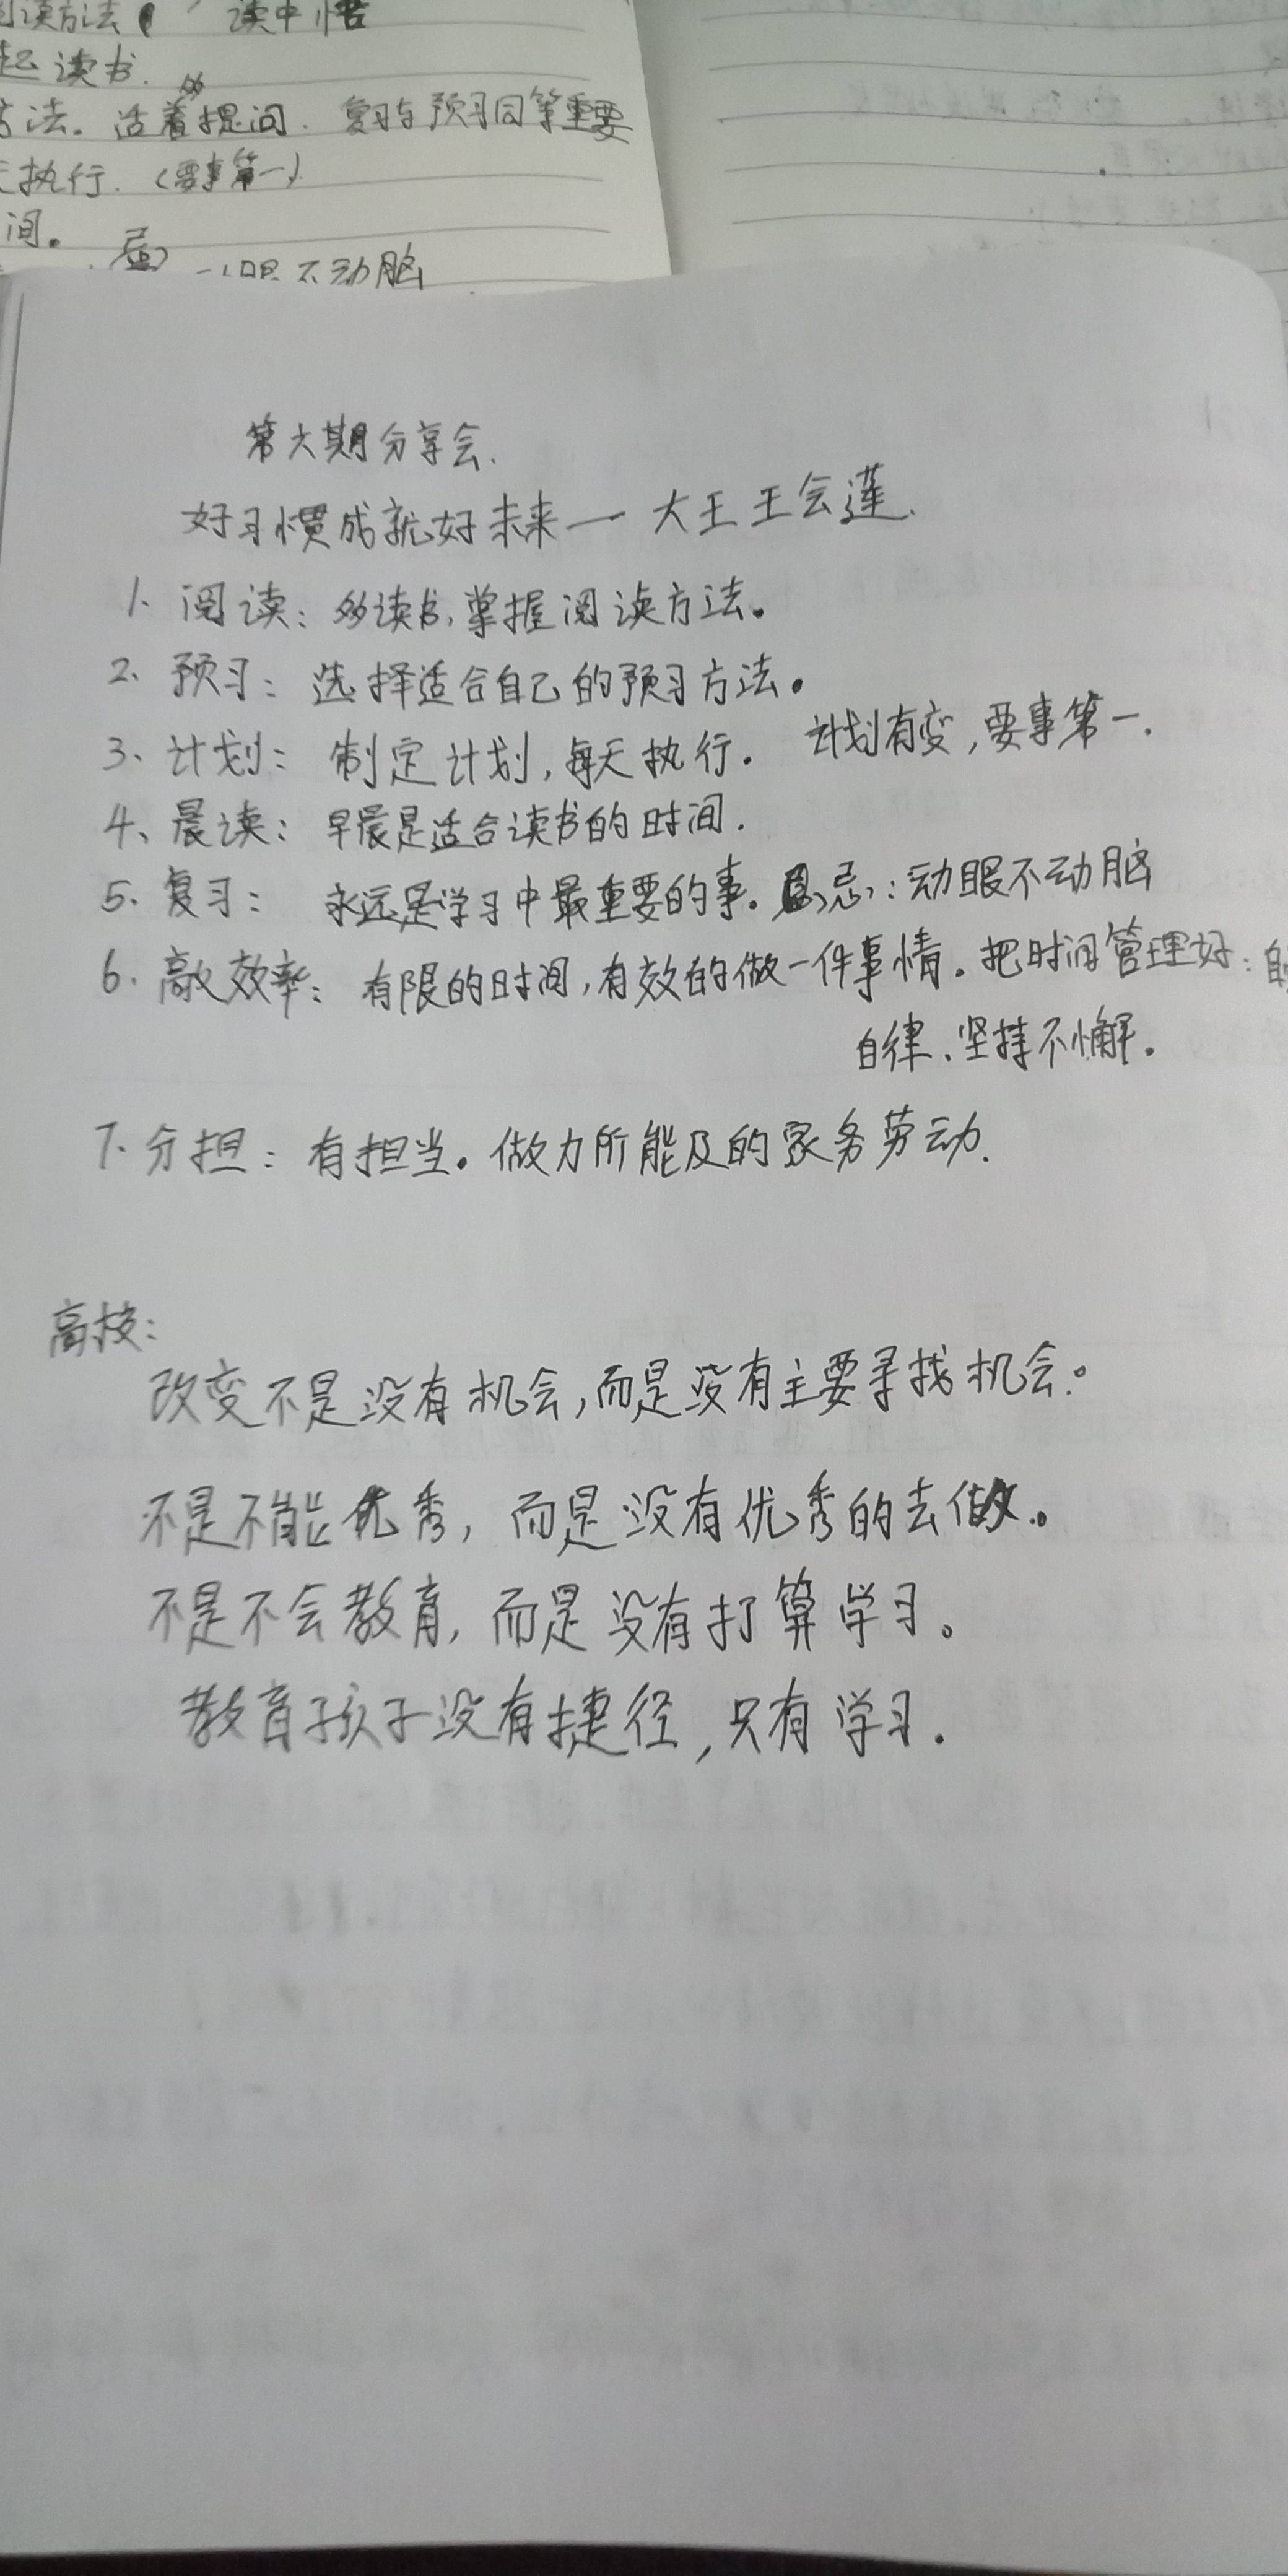 读方法 读中悟
起读书.
方法。活着提问. 复习与预习同等重要
执行. (要事第一)
间。
忌 眼不动脑
第六期分享会.
好习惯成就好未来一 大王王会莲.
1、阅读: 多读书,掌握阅读方法。
2、预习: 选择适合自己的预习方法。
3、计划: 制定计划,每天执行. 计划有变,要事第一.
4、晨读: 早晨是适合读书的时间.
5、复习: 永远是学习中最重要的事。忌:动眼不动脑
6、高效率: 有限的时间,有效的做一件事情。把时间管理好:
自律、坚持不懈。
7、分担: 有担当。做力所能及的家务劳动.
高校:
改变不是没有机会,而是没有主要寻找机会。
不是不能优秀, 而是没有优秀的去做。
不是不会教育, 而是没有打算学习。
教育孩子没有捷径,只有学习.